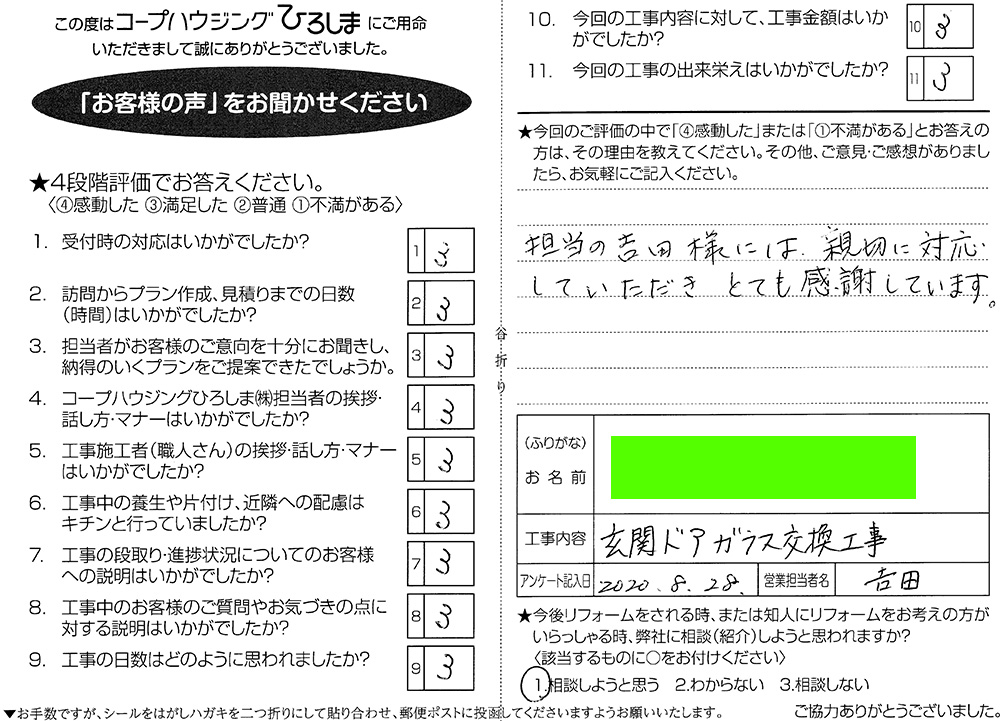 この度はコープハウジングひろしまにご用命
いただきまして誠にありがとうございました。
「お客様の声」をお聞かせください
★4段階評価でお答えください。
〈④感動した ③満足した ②普通 ①不満がある〉
1. 受付時の対応はいかがでしたか?
1 3
2. 訪問からプラン作成、見積りまでの日数
(時間)はいかがでしたか?
2 3
3. 担当者がお客様のご意向を十分にお聞きし、
納得のいくプランをご提案できたでしょうか。
3 3
4. コープハウジングひろしま㈱担当者の挨拶・
話し方・マナーはいかがでしたか?
4 3
5. 工事施工者(職人さん)の挨拶・話し方・マナー
はいかがでしたか?
5 3
6. 工事中の養生や片付け、近隣への配慮は
キチンと行っていましたか?
6 3
7. 工事の段取り・進捗状況についてのお客様
への説明はいかがでしたか?
7 3
8. 工事中のお客様のご質問やお気づきの点に
対する説明はいかがでしたか?
8 3
9. 工事の日数はどのように思われましたか?
9 3
谷折り
10. 今回の工事内容に対して、工事金額はいか
がでしたか?
10 3
11. 今回の工事の出来栄えはいかがでしたか?
11 3
★今回のご評価の中で「④感動した」または「①不満がある」とお答えの
方は、その理由を教えてください。その他、ご意見・ご感想がありまし
たら、お気軽にご記入ください。
担当の吉田様には、親切に対応
していただき とても感謝しています。
(ふりがな)
お名前
工事内容 玄関ドアガラス交換工事
アンケート記入日 2020.8.28. 営業担当者名 吉田
★今後リフォームをされる時、または知人にリフォームをお考えの方が
いらっしゃる時、弊社に相談(紹介)しようと思われますか?
〈該当するものに○をお付けください〉
1.相談しようと思う 2.わからない 3.相談しない
▼お手数ですが、シールをはがしハガキを二つ折りにして貼り合わせ、郵便ポストに投函してくださいますようお願いいたします。
ご協力ありがとうございました。